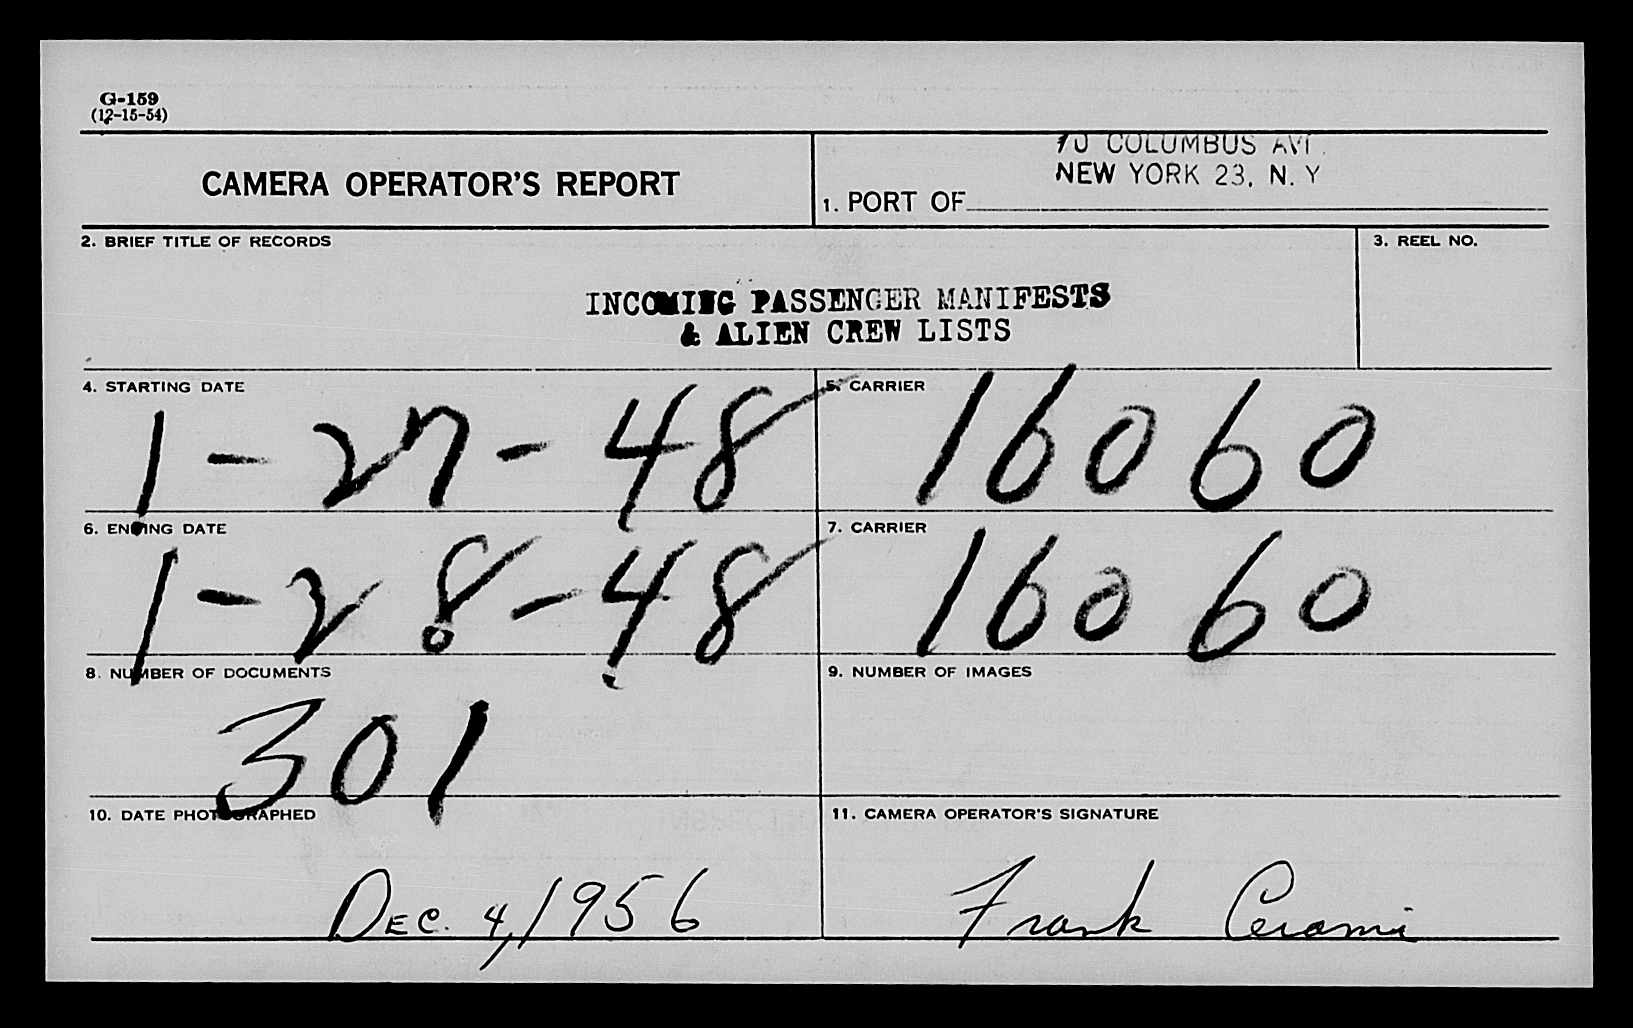 G-159
(12-15-54)
70 COLUMBUS AVE.
NEW YORK 23, N. Y
CAMERA OPERATOR'S REPORT
1. PORT OF
2. BRIEF TITLE OF RECORDS
3. REEL NO.
INCOMING PASSENGER MANIFESTS
& ALIEN CREW LISTS
4. STARTING DATE
5. CARRIER
1-27-48
16060
6. ENDING DATE
7. CARRIER
1-28-48
16060
8. NUMBER OF DOCUMENTS
9. NUMBER OF IMAGES
301
10. DATE PHOTOGRAPHED
11. CAMERA OPERATOR'S SIGNATURE
DEC. 4, 1956
Frank Cerami